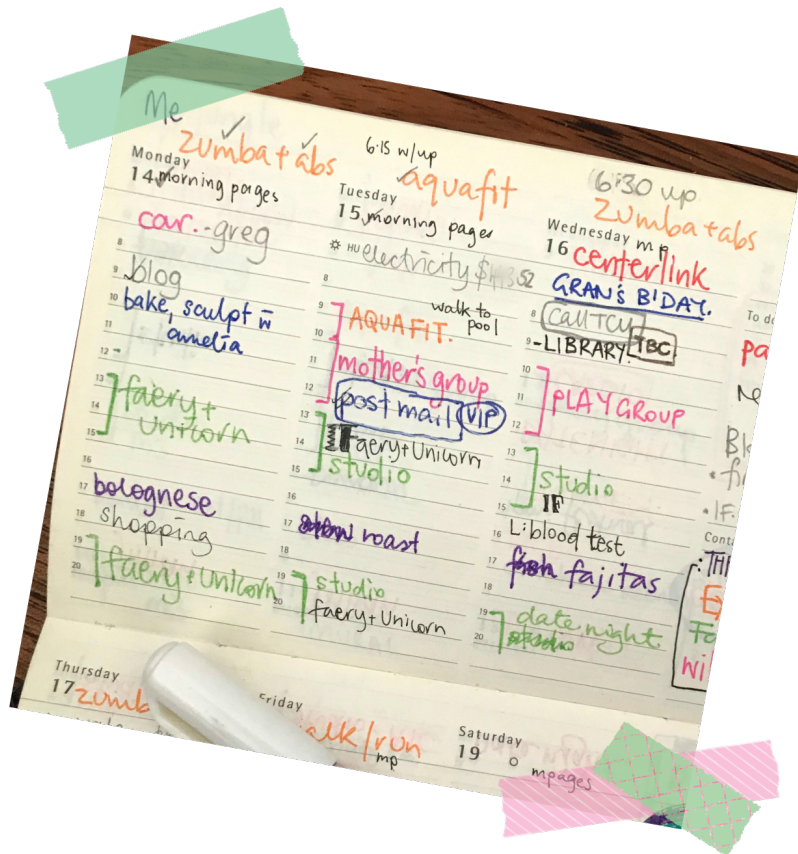 Me
zumba + abs
Monday
14 morning pages
car.-greg
8
9 blog
10 bake, sculpt w
11 amelia
12 -
13 faery +
14 Unicorn
15
16
17 bolognese
18 shopping
19
20 faery + Unicorn
6.15 w/up
aquafit
Tuesday
15 morning pages
HU electricity $ 52
8
9 walk to
AQUAFIT. pool
10
11 mother's group
12
post mail VIP
13
14 Faery + Unicorn
15 studio
16
17 roast
18
19 studio
20 faery + Unicorn
6:30 up
zumba + abs
Wednesday mp
16 centerlink
GRAN'S B'DAY.
8 call TCU
9 - LIBRARY. TBC
10
11 PLAYGROUP
12
13
14 studio
15 IF
16 L: blood test
17 fajitas
18
19 date night.
20 studio
To do
pa
Ne
Bl
IF.
Cont
: TH
E
Fa
wi
Thursday
17 zumb
Friday
alk/run
mp
Saturday
19
mpages